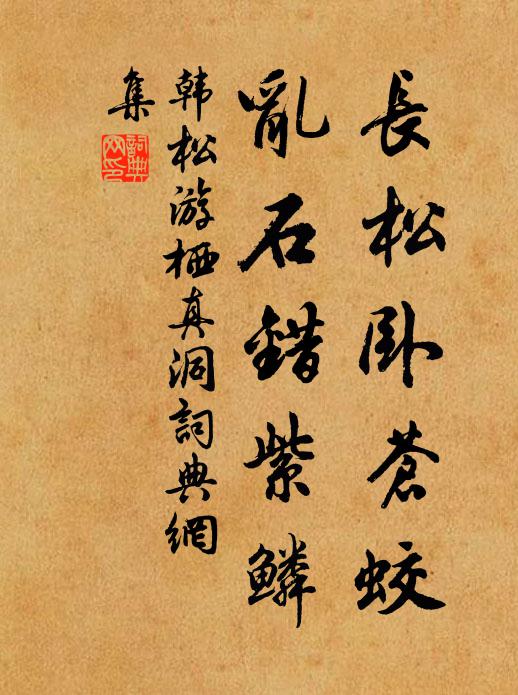 長松卧蒼蛟
亂石錯紫鱗
韩松游栖真洞詞典網
集
詞典